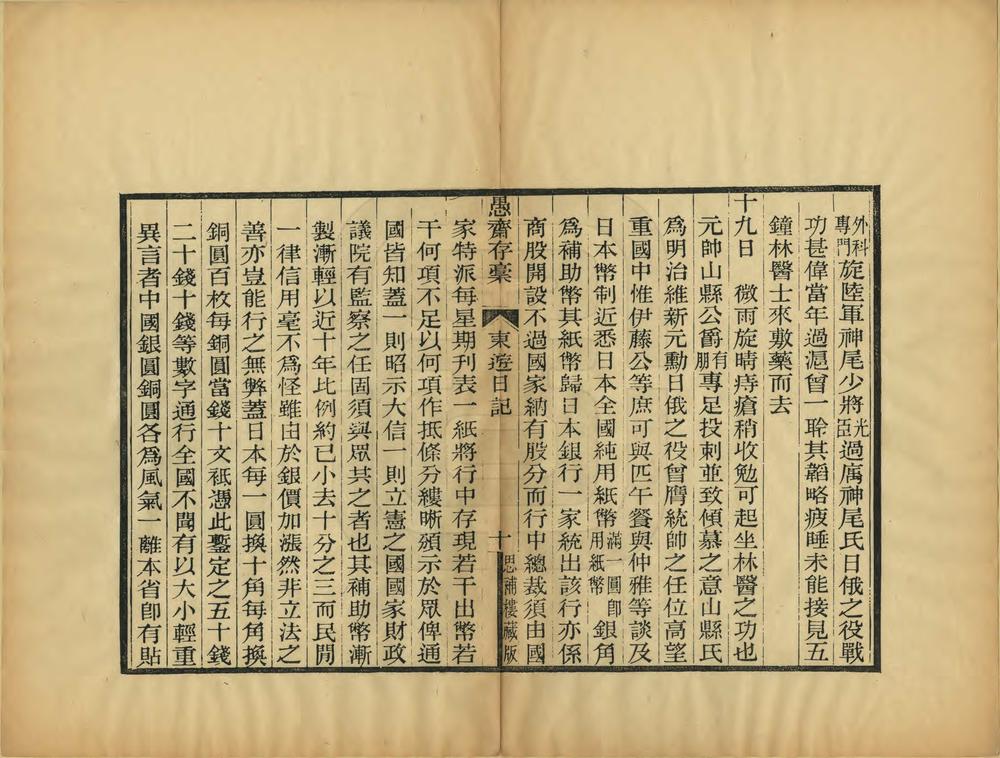 外科專門旋陸軍神尾少將光臣過厲神尾氏日俄之役戰
功甚偉當年過滬曾一聆其韜略疲睡未能接見五
鐘林醫士來敷藥而去
十九日　微雨旋晴痔瘡稍收勉可起坐林醫之功也
元帥山縣公爵有朋專足投刺並致傾慕之意山縣氏
爲明治維新元勳日俄之役曾膺統帥之任位高望
重國中惟伊藤公等庶可與匹午餐與仲雅等談及
日本幣制近悉日本全國純用紙幣滿一圓卽用紙幣銀角
爲補助幣其紙幣歸日本銀行一家統出該行亦係
商股開設不過國家納有股分而行中總裁須由國
愚齋存稾　東遊日記　十一　思補樓藏版
家特派每星期刊表一紙將行中存現若干出幣若
干何項不足以何項作抵條分縷晰頒示於眾俾通
國皆知蓋一則昭示大信一則立憲之國國家財政
議院有監察之任固須與眾共之者也其補助幣漸
製漸輕以近十年比例約已小去十分之三而民間
一律信用毫不爲怪雖由於銀價加漲然非立法之
善亦豈能行之無弊蓋日本每一圓換十角每角換
銅圓百枚每銅圓當錢十文祇憑此鏨定之五十錢
二十錢十錢等數字通行全國不聞有以大小輕重
異言者中國銀圓銅圓各爲風氣一離本省卽有貼